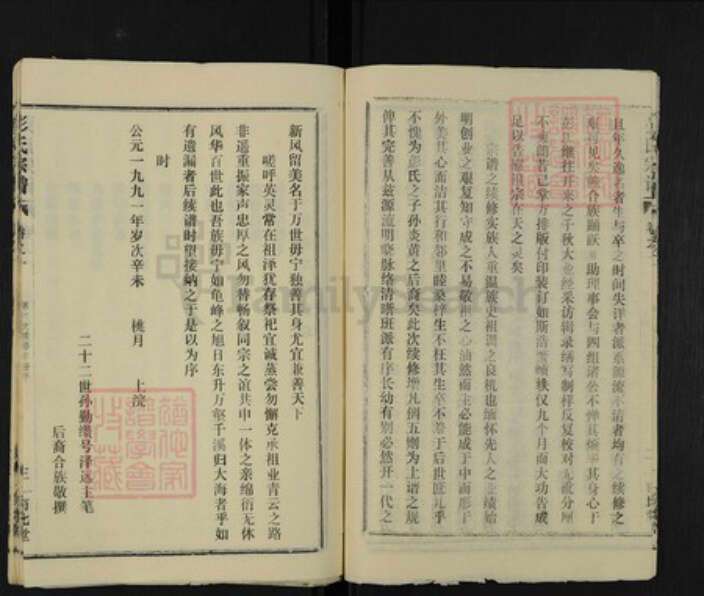 且年久逸名者生与卒之时间失详者派系源流不清者均有之续修之
艰可见矣幸合族踊跃助理事会与四组诸公不惮其烦苦其身心于
彭氏继往开来之千秋大业经采访辑录缮写制样反复校对无敢分厘
不爽朗若已掌方排版付印装订如斯浩繁帙仅九个月而大功告成
足以告慰祖宗在天之灵矣
宗谱之续修实族人重温族史祖训之良机也缅怀先人之业绩始
明创业之艰复知守成之不易敬祖之心油然而生必能成于中而形于
外美其心而洁其行和邻里睦桑梓生不枉其生卒不辱于后世庶几乎
不愧为彭氏之子孙炎黄之后裔矣此次续修增凡例五则为上谱之规
俾其完善从兹源流明晓脉络清晰班派有序长幼有别必然开一代之
新风留美名于万世毋宁独善其身尤宜兼善天下
嗟呼英灵常在祖泽犹存祭祀宜诚蒸尝勿懈克承祖业青云之路
非遥重振家声忠厚之风勿替畅叙同宗之谊共申一体之亲绵衍无休
风华百世此也吾族毋宁如龟峰之旭日东升万壑千溪归大海者乎如
有遗漏者后续谱时望接纳之于是以为序
时
公元一九九一年岁次辛未 桃月 上浣
二十二世孙勤缵号泽远主笔
后裔合族敬撰
彭氏宗谱
FamilySearch